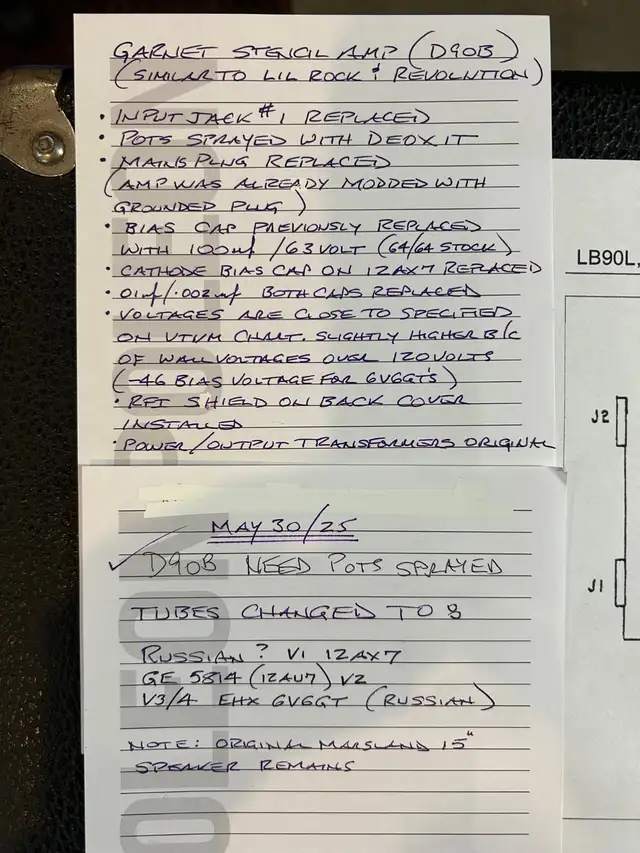 GARNET STENCIL AMP (D90B)
(SIMILAR TO LIL ROCK & REVOLUTION)
• INPUT JACK #1 REPLACED
• POTS SPRAYED WITH DEOXIT
• MAINS PLUG REPLACED
(AMP WAS ALREADY MODDED WITH
GROUNDED PLUG)
• BIAS CAP PREVIOUSLY REPLACED
WITH 100uf/63VOLT (64/64 STOCK)
• CATHODE BIAS CAP ON 12AX7 REPLACED
• .01uf/.002uf BOTH CAPS REPLACED
• VOLTAGES ARE CLOSE TO SPECIFIED
ON VTVM CHART. SLIGHTLY HIGHER B/C
OF WALL VOLTAGES OVER 120VOLTS
(-46 BIAS VOLTAGE FOR 6V6GT'S)
• RFI SHIELD ON BACK COVER
INSTALLED
• POWER/OUTPUT TRANSFORMERS ORIGINAL
MAY 30/25
✓ D90B NEED POTS SPRAYED
TUBES CHANGED TO :
RUSSIAN? V1 12AX7
GE 5814 (12AU7) V2
V3/4 EHX 6V6GT (RUSSIAN)
NOTE: ORIGINAL MARSLAND 15"
SPEAKER REMAINS
LB90L,
J2
J1